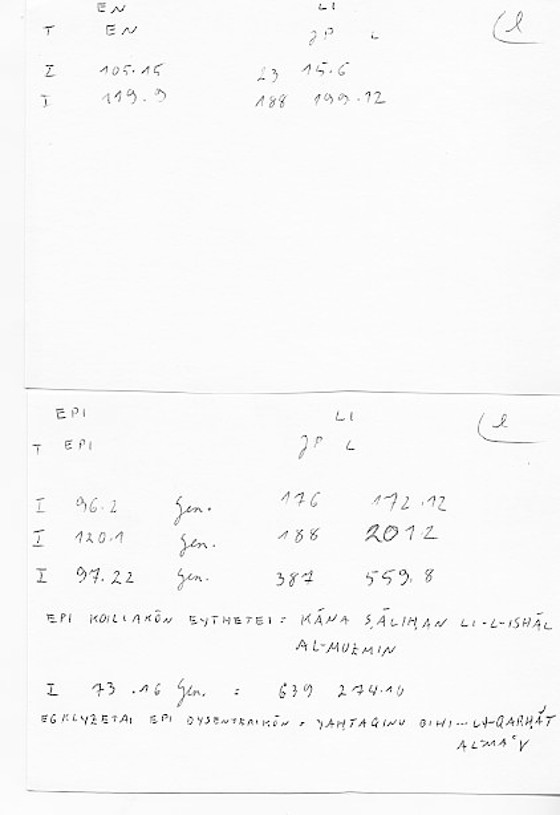 EN LI
T EN JP L (l
I 105.15 23 15.6
I 119.9 188 199.12
EPI LI (l
T EPI JP L
I 96.2 Gen. 176 172.12
I 120.1 Gen. 188 201.2
I 97.22 Gen. 387 559.8
EPI KOILIAKŌN EYTHETEI = KĀNA ṢĀLIḤAN LI-L-ISHĀL
AL-MUZMIN
I 73.16 Gen. = 639 274.10
EGKLYZETAI EPI DYSENTERIKŌN = YAḤTAQINU BIHI ... LI-QARḤĀT